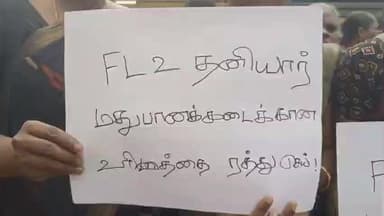 FL 2 தனியார்
மதுபானக்கடைக்கான
உரிமத்தை ரத்து செய்!
F